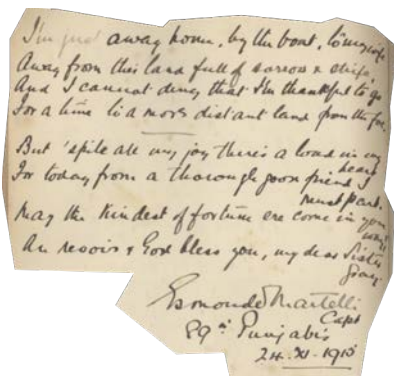 I'm just away home, by the boat, to my wife
Away from this land full of sorrow & strife,
And I cannot deny that I'm thankful to go
For a time to a more distant land from the foe.
But 'spite all my joy there's a load in my heart
For today from a thorough good friend I must part.
May the kindest of fortune ere come in your way,
Au revoir & God bless you, my dear Sister
Esmonde Martelli
Capt
89th Punjabis
24. XI. 1915